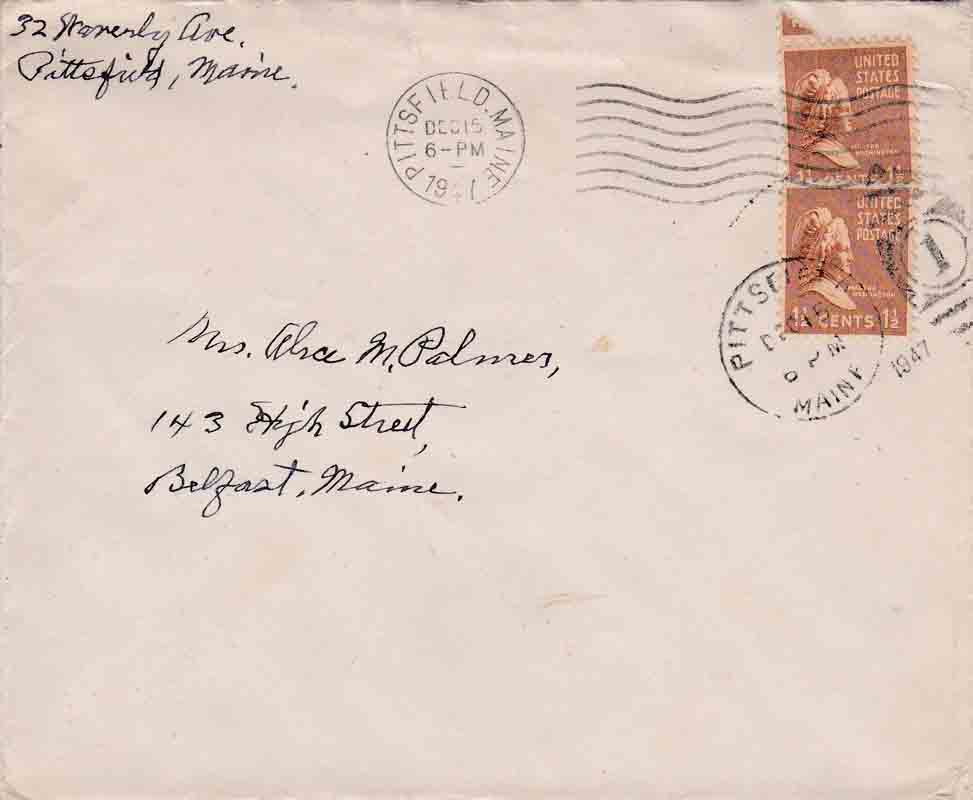 32 Waverly Ave.
Pittsfield, Maine.
PITTSFIELD, MAINE
DEC 15
6-PM
1947
UNITED
STATES
POSTAGE
MARTHA
WASHINGTON
1½ CENTS 1½
UNITED
STATES
POSTAGE
MARTHA
WASHINGTON
1½ CENTS 1½
1
PITTSFIELD
DEC 15
6 PM
MAINE
1947
Mrs. Alice M. Palmer,
143 High Street,
Belfast, Maine.